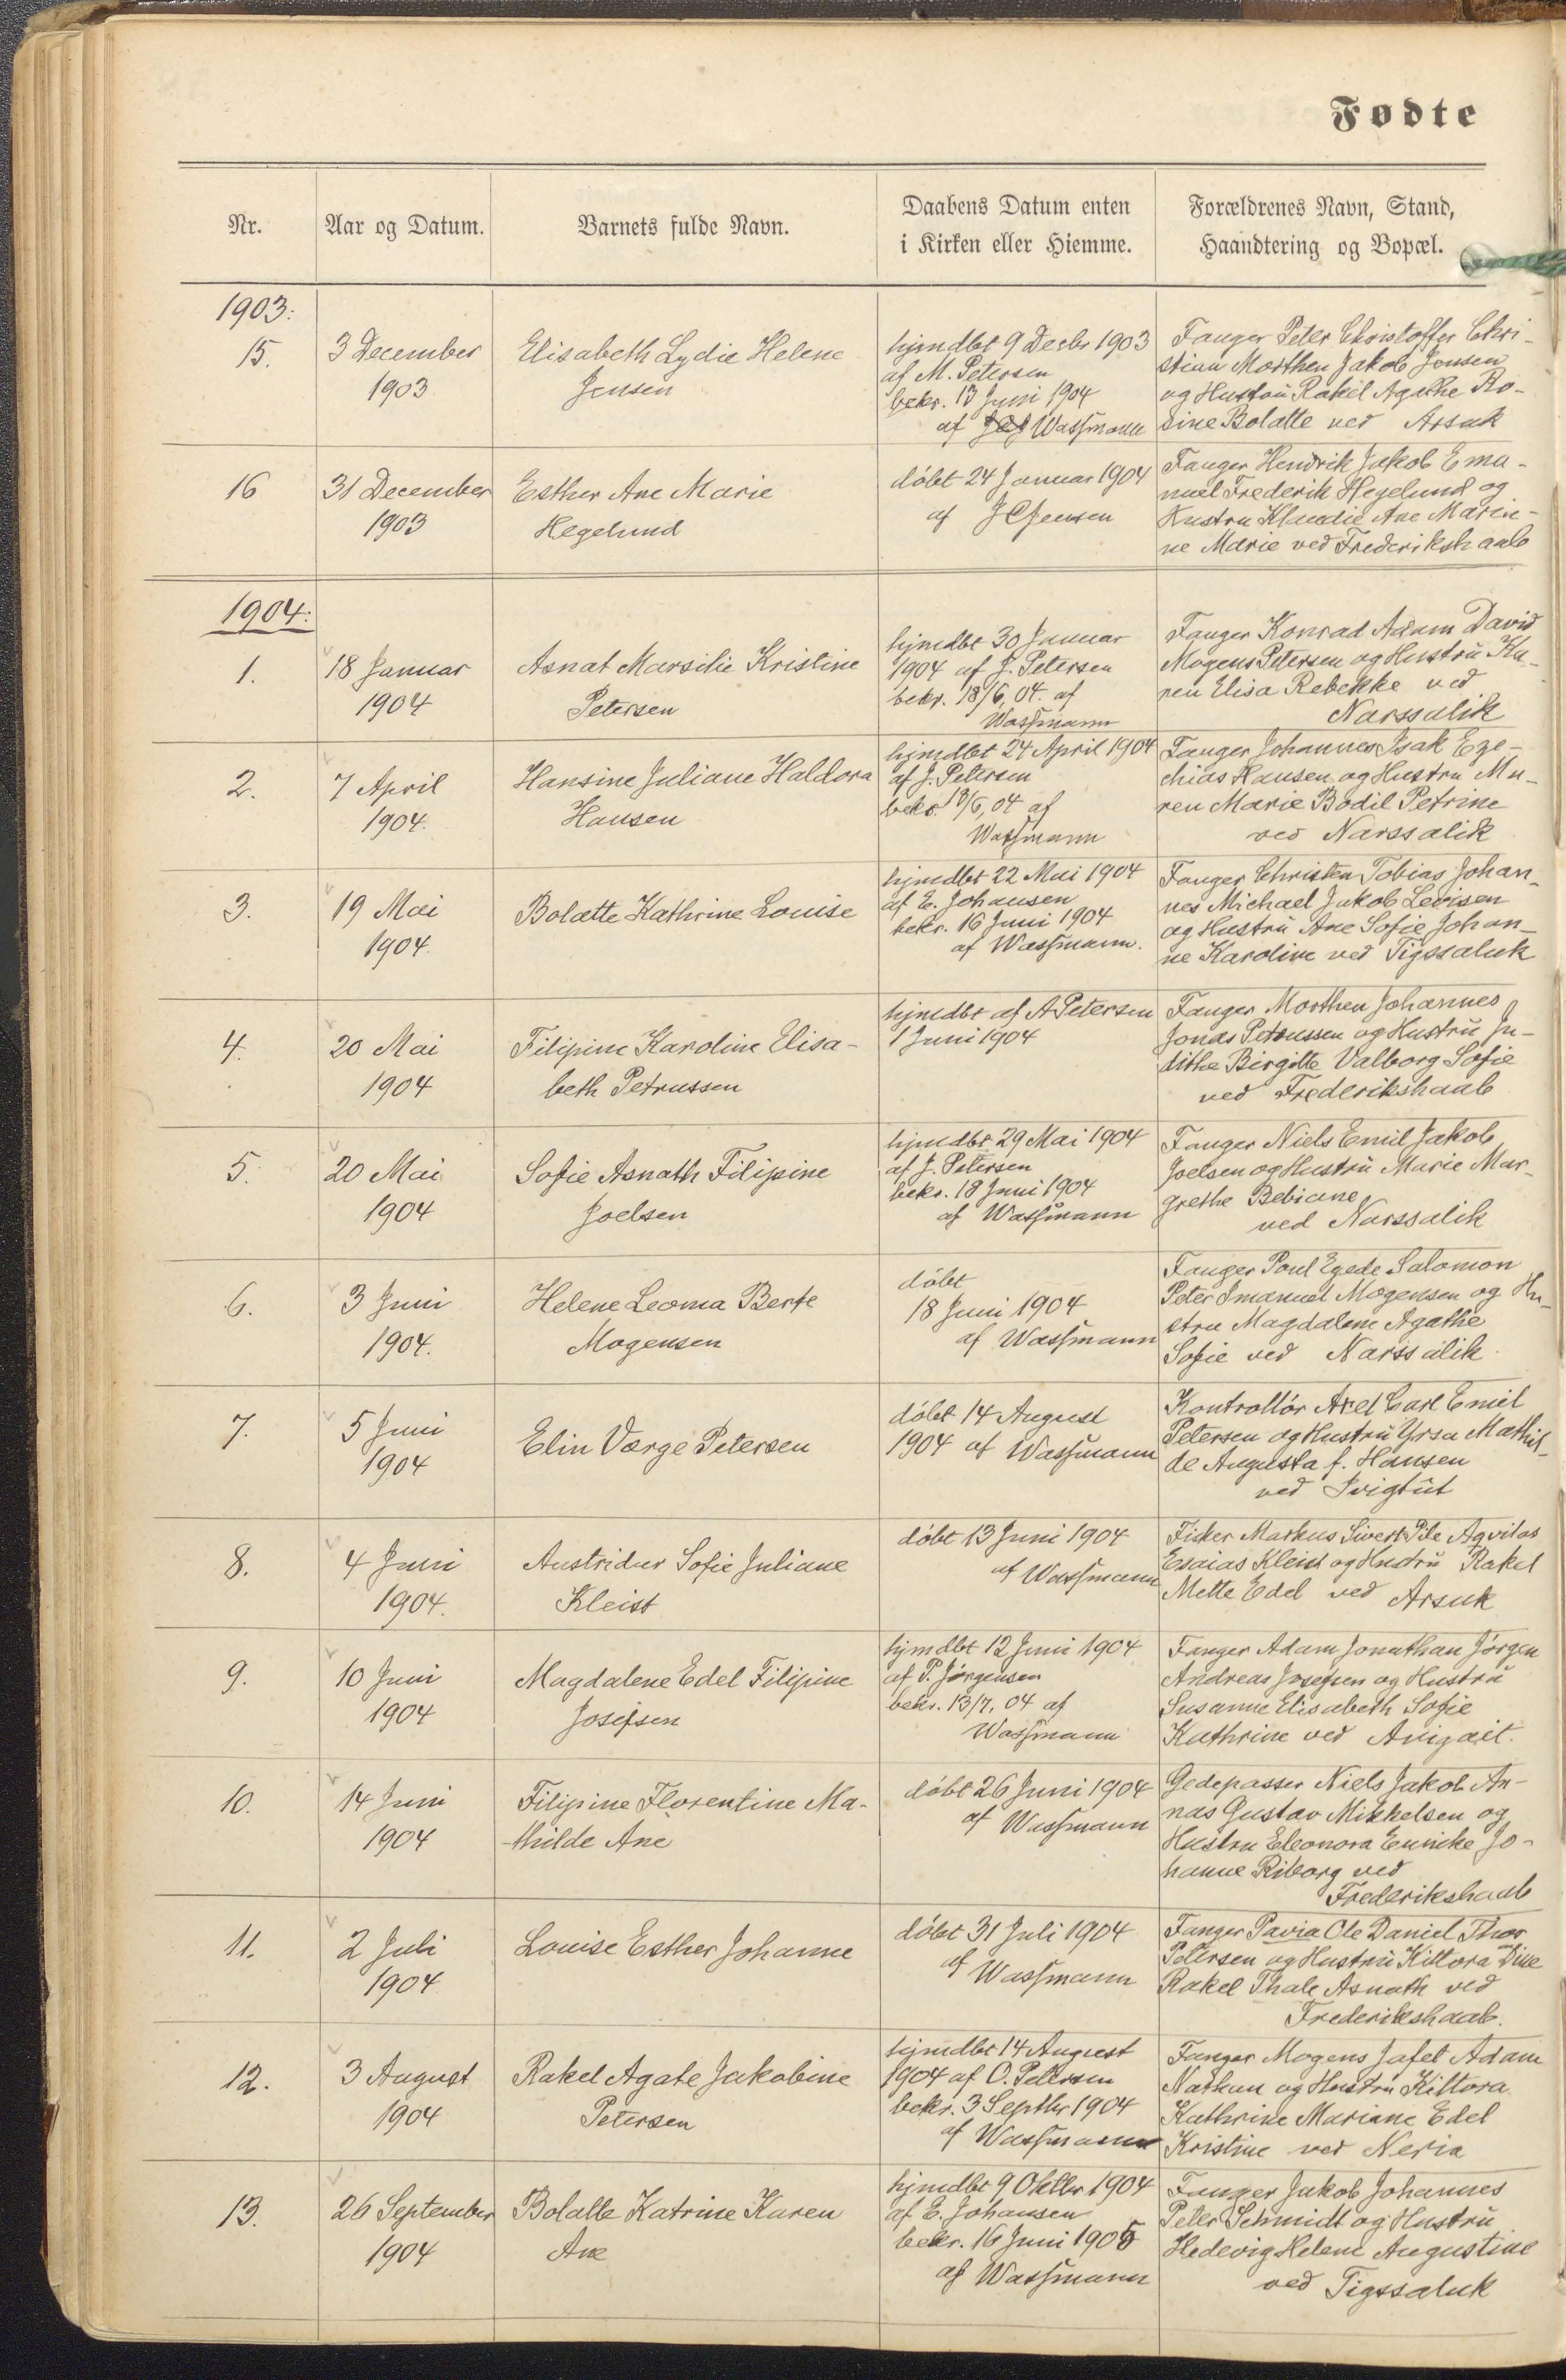 Fødte
Nr.
Aar og Datum.
Barnets fulde Navn.
Daabens Datum enten
i Kirken eller Hiemme.
Forældrenes Navn, Stand,
Haandtering og Bopæl.
1903:
15.
3 December
1903
Elisabeth Lydie Helene
Jensen
hjmdbt 9 Decbr 1903
af M. Petersen
bekr. 13 Juni 1904
af Wassmann
Fanger Peter Christoffer Chri-
stian Morthen Jakob Jensen
og Hustru Rakel Agathe Ro-
sine Bolatte ved Arsuk
16
31 December
1903
Esther Ane Marie
Hegelund
døbt 24 Januar 1904
af J C Jensen
Fanger Hendrik Jakob Ema-
nuel Frederik Hegelund og
Hustru Klaudie Ane Marin-
ne Marie ved Frederikshaab
1904:
1.
18 Januar
1904
Asnat Marsilie Kristine
Petersen
hjmdbt 30 Januar
1904 af J. Petersen
bekr. 18/6, 04. af
Wassmann
Fanger Konrad Adam David
Mogens Petersen og Hustru Ka-
ren Elisa Rebekke ved
Narssalik
2.
7 April
1904.
Hansine Juliane Haldora
Hansen
hjmdbt 24 April 1904
af J. Petersen
bekr. 18/6, 04 af
Wassmann
Fanger Johannes Isak Eze-
chias Hansen og Hustru Ma-
ren Marie Bodil Petrine
ved Narssalik
3.
19 Mai
1904.
Bolatte Kathrine Louise
hjmdbt 22 Mai 1904
af E. Johansen
bekr. 16 Juni 1904
af Wassmann.
Fanger Christen Tobias Johan-
nes Michael Jakob Levisen
og Hustru Ane Sofie Johan-
ne Karoline ved Tigssaluk
4.
20 Mai
1904
Filipine Karoline Elisa-
beth Petrussen
hjmdbt af A Petersen
1 Juni 1904
Fanger Morthen Johannes
Jonas Petrussen og Hustru Ju-
dithe Birgitte Valborg Sofie
ved Frederikshaab
5.
20 Mai
1904
Sofie Asnath Filipine
Joelsen
hjmdbt 29 Mai 1904
af J. Petersen
bekr. 18 Juni 1904
af Wassmann
Fanger Niels Emil Jakob
Joelsen og Hustru Marie Mar-
grethe Bebiane
ved Narssalik
6.
3 Juni
1904.
Helene Leoma Berte
Mogensen
døbt
18 Juni 1904
af Wassmann
Fanger Poul Egede Salomon
Peter Imanuel Mogensen og Hu-
stru Magdalene Agathe
Sofie ved Narssalik
7.
5 Juni
1904
Elin Værge Petersen
døbt 14 August
1904 af Wassmann
Kontrollør Axel Carl Emil
Petersen og Hustru Yrsa Mathil-
de Augusta f. Hansen
ved Ivigtût
8.
4 Juni
1904.
Austridur Sofie Juliane
Kleist
døbt 13 Juni 1904
af Wassmann
Fisker Markus Sivert Pile Aqvilas
Esaias Kleist og Hustru Rakel
Mette Edel ved Arsuk
9.
10 Juni
1904
Magdalene Edel Filipine
Josefsen
hjmdbt 12 Juni 1904
af P. Jørgensen
bekr. 13/7, 04 af
Wassmann
Fanger Adam Jonathan Jørgen
Andreas Josefsen og Hustru
Susanne Elisabeth Sofie
Kathrine ved Avigait.
10.
14 Juni
1904
Filipine Florentine Ma-
thilde Ane
døbt 26 Juni 1904
af Wassmann
Gedepasser Niels Jakob An-
nas Gustav Mikkelsen og
Hustru Eleonora Eunike Jo-
hanne Riborg ved
Frederikshaab
11.
2 Juli
1904
Louise Esther Johanne
døbt 31 Juli 1904
af Wassmann
Fanger Pavia Ole Daniel Thor
Petersen og Hustru Kittora Dine
Rakel Thale Asnath ved
Frederikshaab.
12.
3 August
1904
Rakel Agate Jakobine
Petersen
hjmdbt 14 August
1904 af O. Petersen
bekr. 3 Septbr 1904
af Wassmann
Fanger Mogens Jafet Adam
Nathan og Hustru Kittora
Kathrine Mariane Edel
Kristine ved Neria
13.
26 September
1904
Bolatte Katrine Karen
Ane
hjmdbt 9 Oktbr 1904
af E. Johansen
bekr. 16 Juni 1905
af Wassmann
Fanger Jakob Johannes
Peter Schmidt og Hustru
Hedevig Helene Augustine
ved Tigssaluk